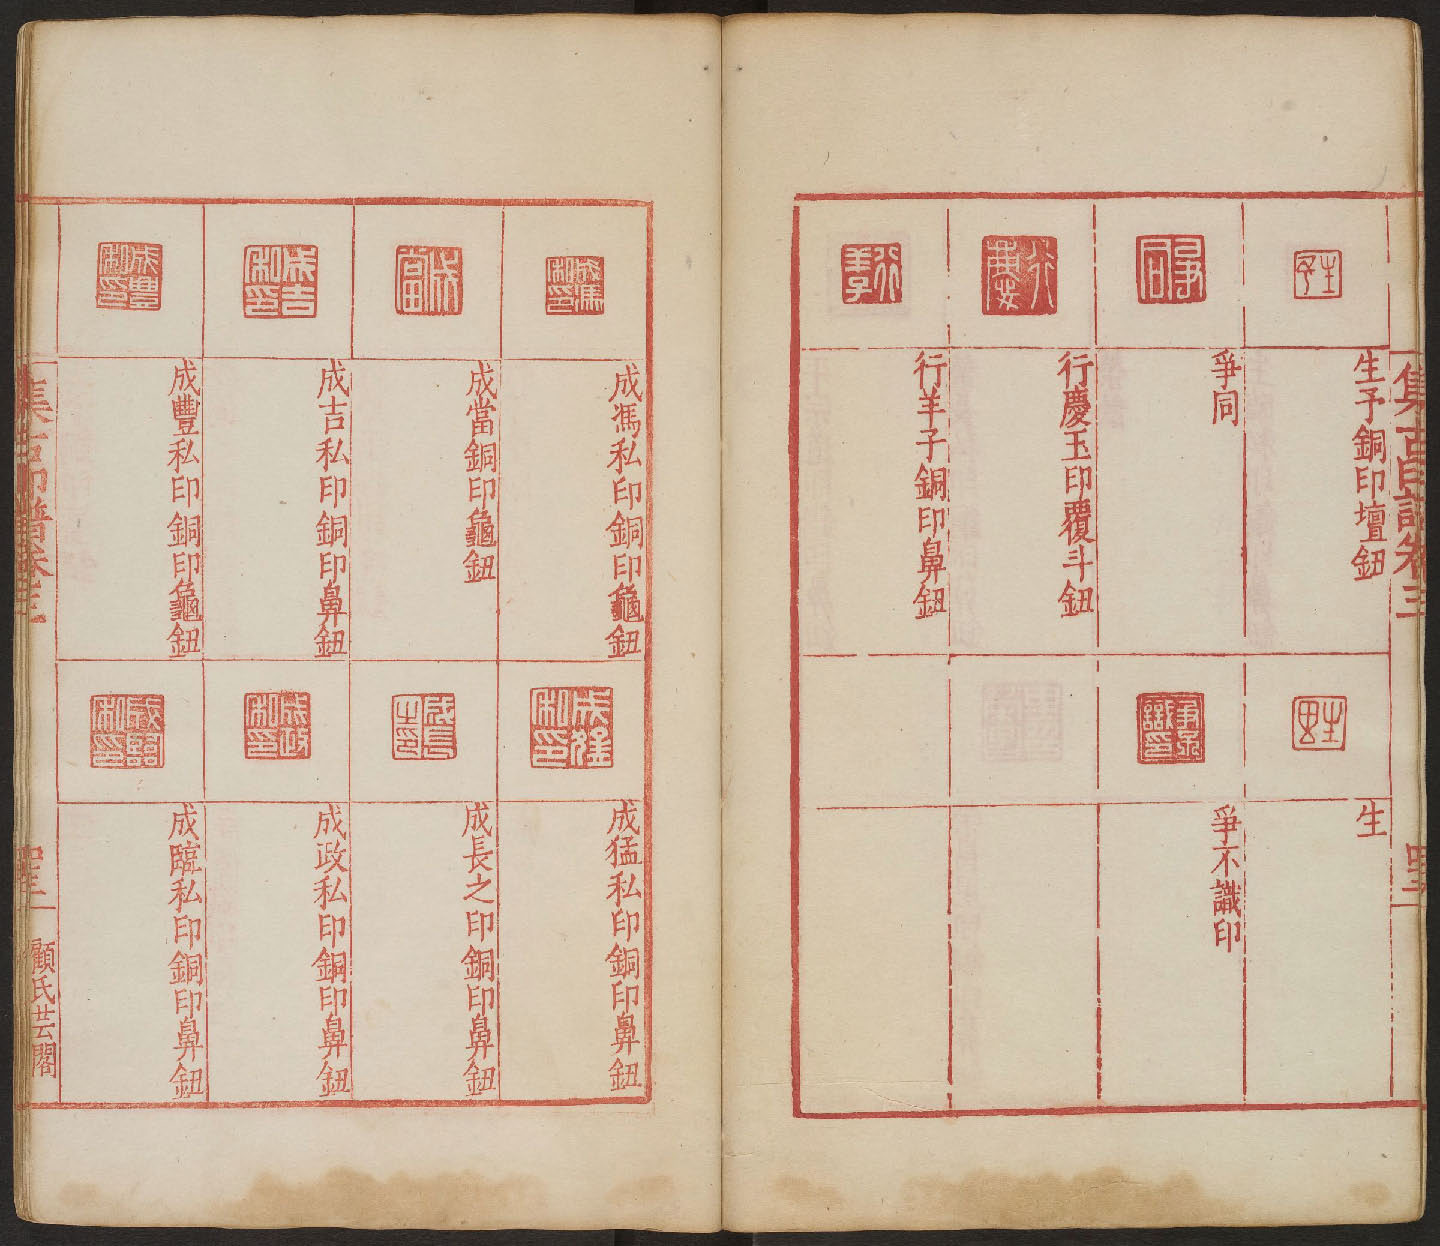 集古印譜卷三
生予銅印壇鈕
爭同
行慶玉印覆斗鈕
行羊子銅印鼻鈕
生
爭不識印
成馮私印銅印龜鈕
成當銅印龜鈕
成吉私印銅印鼻鈕
成豐私印銅印龜鈕
成猛私印銅印鼻鈕
成長之印銅印鼻鈕
成政私印銅印鼻鈕
成臨私印銅印鼻鈕
集古印譜卷三
顧氏芸閣